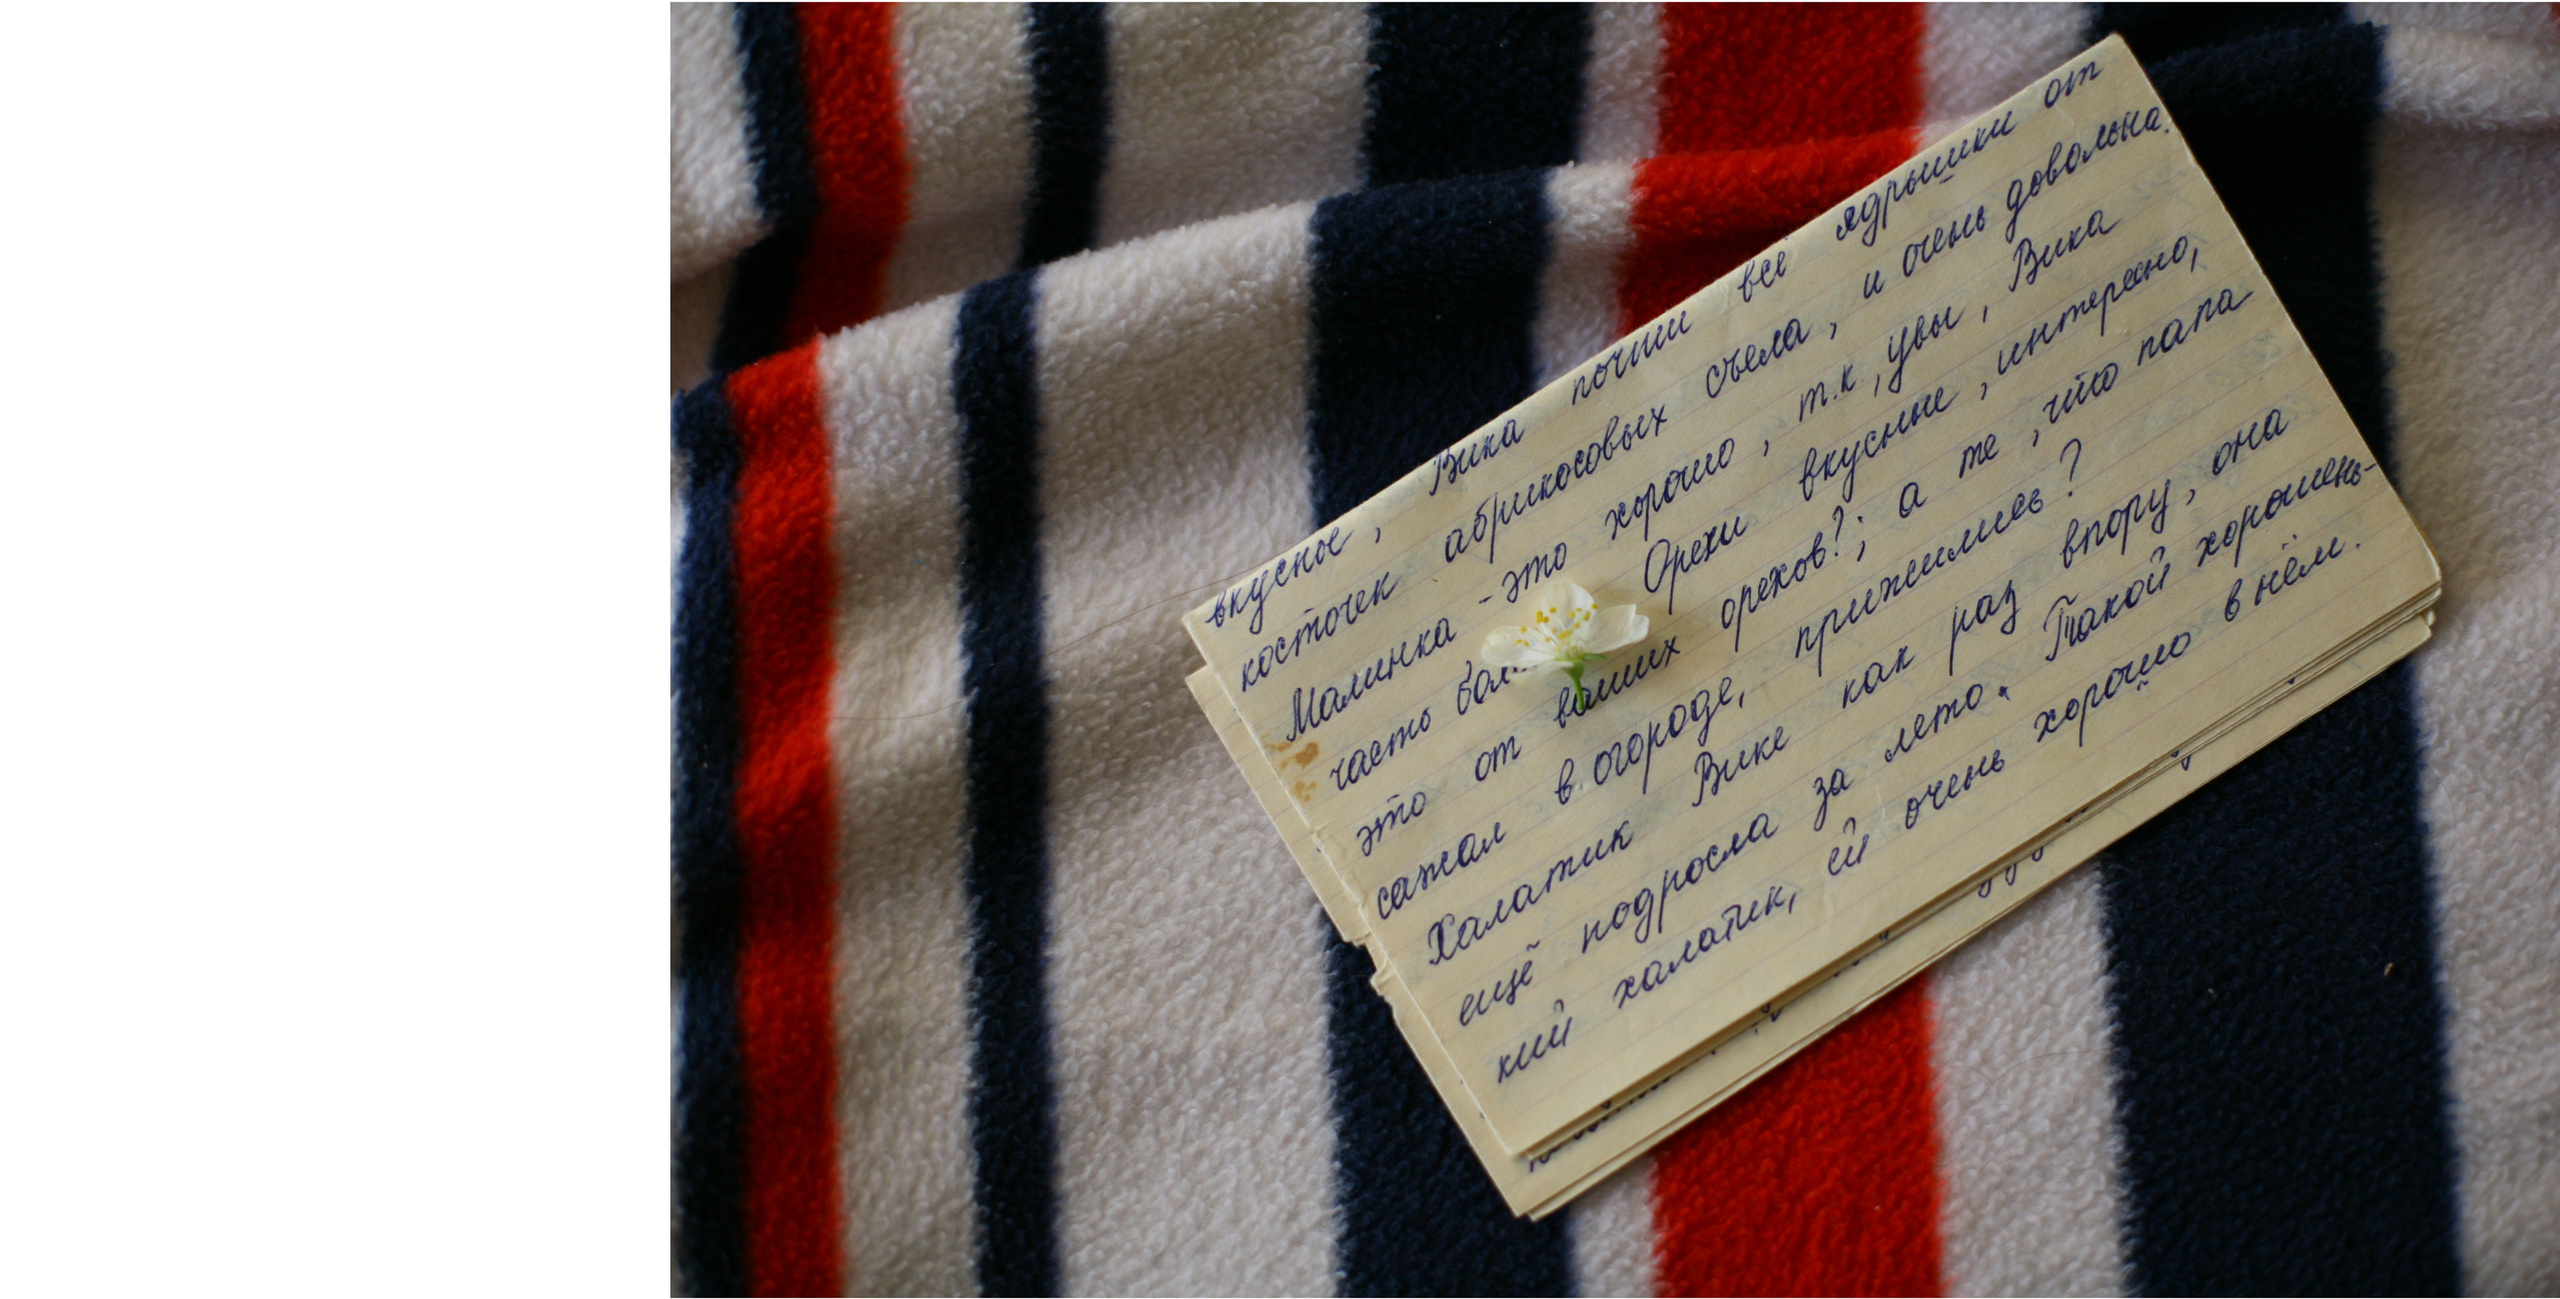 вкусное, Вика почти все ядрышки от
косточек абрикосовых съела, и очень довольна.
Малинка - это хорошо, т.к, увы, Вика
часто бол Орехи вкусные, интересно,
это от ваших орехов?; а те, что папа
сажал в огороде, прижились?
Халатик Вике как раз впору, она
ещё подросла за лето. Такой хорошень-
кий халатик, ей очень хорошо в нём.